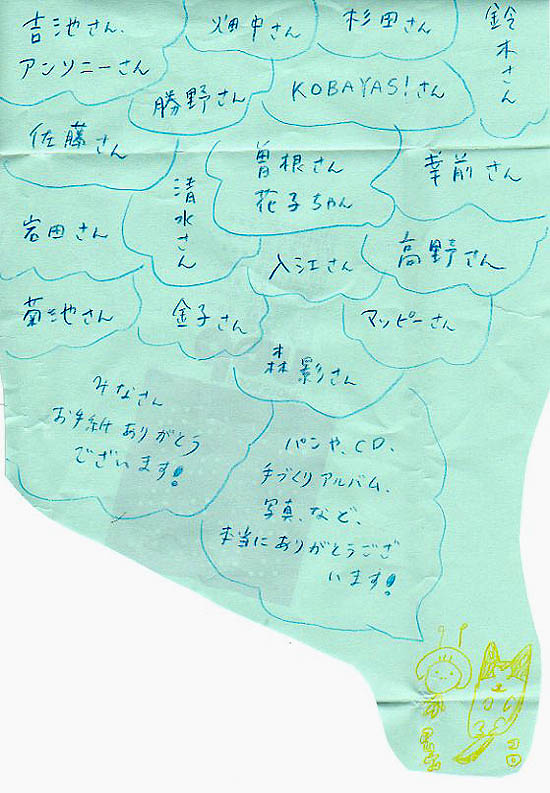 吉池さん、
アンソニーさん
畑中さん
杉田さん
鈴木さん
勝野さん
KOBAYAS!さん
佐藤さん
清水さん
曽根さん
花子ちゃん
幸前さん
岩田さん
入江さん
高野さん
菊池さん
金子さん
マッピーさん
森影さん
みなさん
お手紙ありがとう
ございます!
パンや、CD、
手づくりアルバム、
写真、など、
本当にありがとうござ
います!
コロ